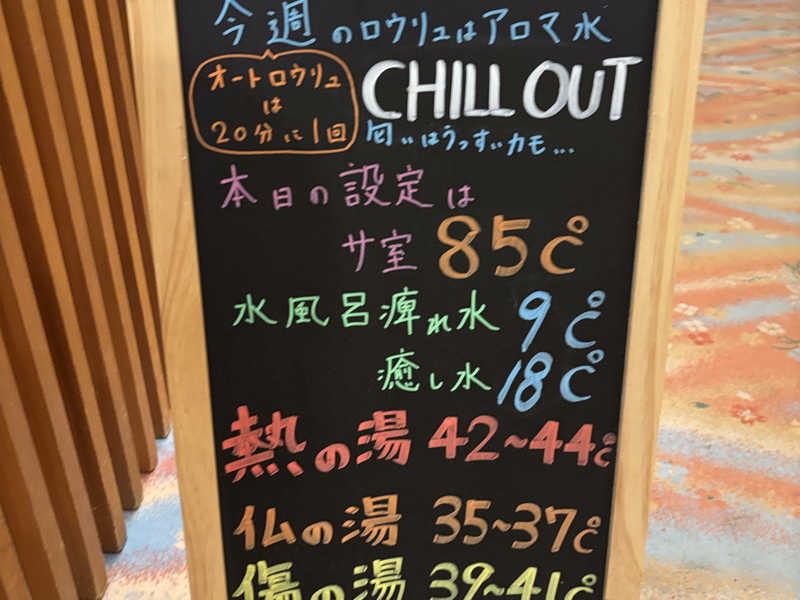 今週のロウリュはアロマ水
オートロウリュ
は
20分に1回
CHILL OUT
匂いはうっすぃカモ...
本日の設定は
サ室 85℃
水風呂痺れ水 9℃
癒し水 18℃
熱の湯 42~44℃
仏の湯 35~37℃
傷の湯 39~41℃